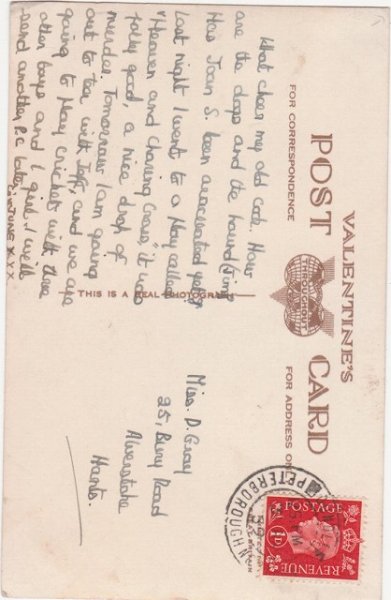 VALENTINE'S
POST CARD
THROUGHOUT
FOR CORRESPONDENCE
FOR ADDRESS ON
What cheer my old cock. How
are the dogs and the hound (Jing
Has Joan S. been evacuated yet?
Last night I went to a Play called
"Heaven and Charing Cross", it was
jolly good, a nice dash of
murder. Tomorrow I am going
out to tea with Jeff, and we are
going to Play cricket with three
other boys and 1 girl. I will
send another P.C. later
JUNE XXX
THIS IS A REAL PHOTOGRAPH
Miss. D. Gray
25, Bury Road
Alverstoke
Hants.
PETERBOROUGH N
POSTAGE
1D
REVENUE